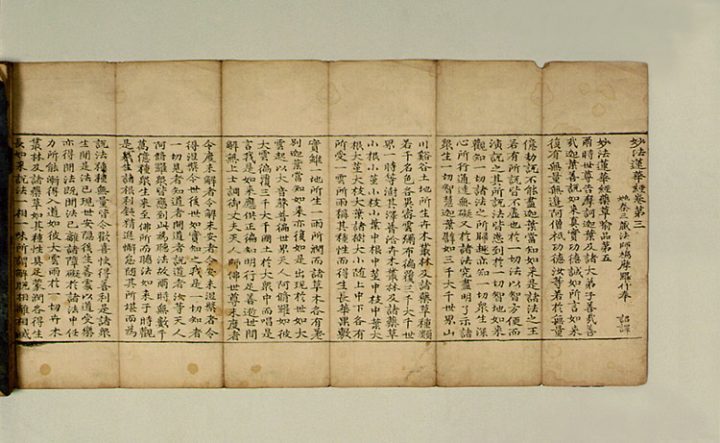 妙法蓮華經卷第三
姚秦三藏法師鳩摩羅什奉 詔譯
妙法蓮華經藥草喻品第五
爾時世尊告摩訶迦葉及諸大弟子善哉善
哉迦葉善說如來真實功德誠如所言如來
復有無量無邊阿僧祇功德汝等若於無量
億劫說不能盡迦葉當知如來是諸法之王
若有所說皆不虛也於一切法以智方便而
演說之其所說法皆悉到於一切智地如來
觀知一切諸法之所歸趣亦知一切眾生深
心所行通達無礙又於諸法究盡明了示諸
眾生一切智慧迦葉譬如三千大千世界山
川谿谷土地所生卉木叢林及諸藥草種類
若干名色各異密雲彌布徧覆三千大千世
界一時等澍其澤普洽卉木叢林及諸藥草
小根小莖小枝小葉中根中莖中枝中葉大
根大莖大枝大葉諸樹大小隨上中下各有
所受一雲所雨稱其種性而得生長華菓敷
實雖一地所生一雨所潤而諸草木各有差
別迦葉當知如來亦復如是出現於世如大
雲起以大音聲普徧世界天人阿脩羅如彼
大雲徧覆三千大千國土於大眾中而唱是
言我是如來應供正徧知明行足善逝世間
解無上士調御丈夫天人師佛世尊未度者
令度未解者令解未安者令安未涅槃者令
得涅槃今世後世如實知之我是一切知者
一切見者知道者開道者說道者汝等天人
阿脩羅眾皆應到此為聽法故爾時無數千
萬億種眾生來至佛所而聽法如來于時觀
是眾生諸根利鈍精進懈怠隨其所堪而為
說法種種無量皆令歡喜快得善利是諸眾
生聞是法已現世安隱後生善處以道受樂
亦得聞法既聞法已離諸障礙於諸法中任
力所能漸得入道如彼大雲雨於一切卉木
叢林及諸藥草如其種性具足蒙潤各得生
長如來說法一相一味所謂解脫相離相滅